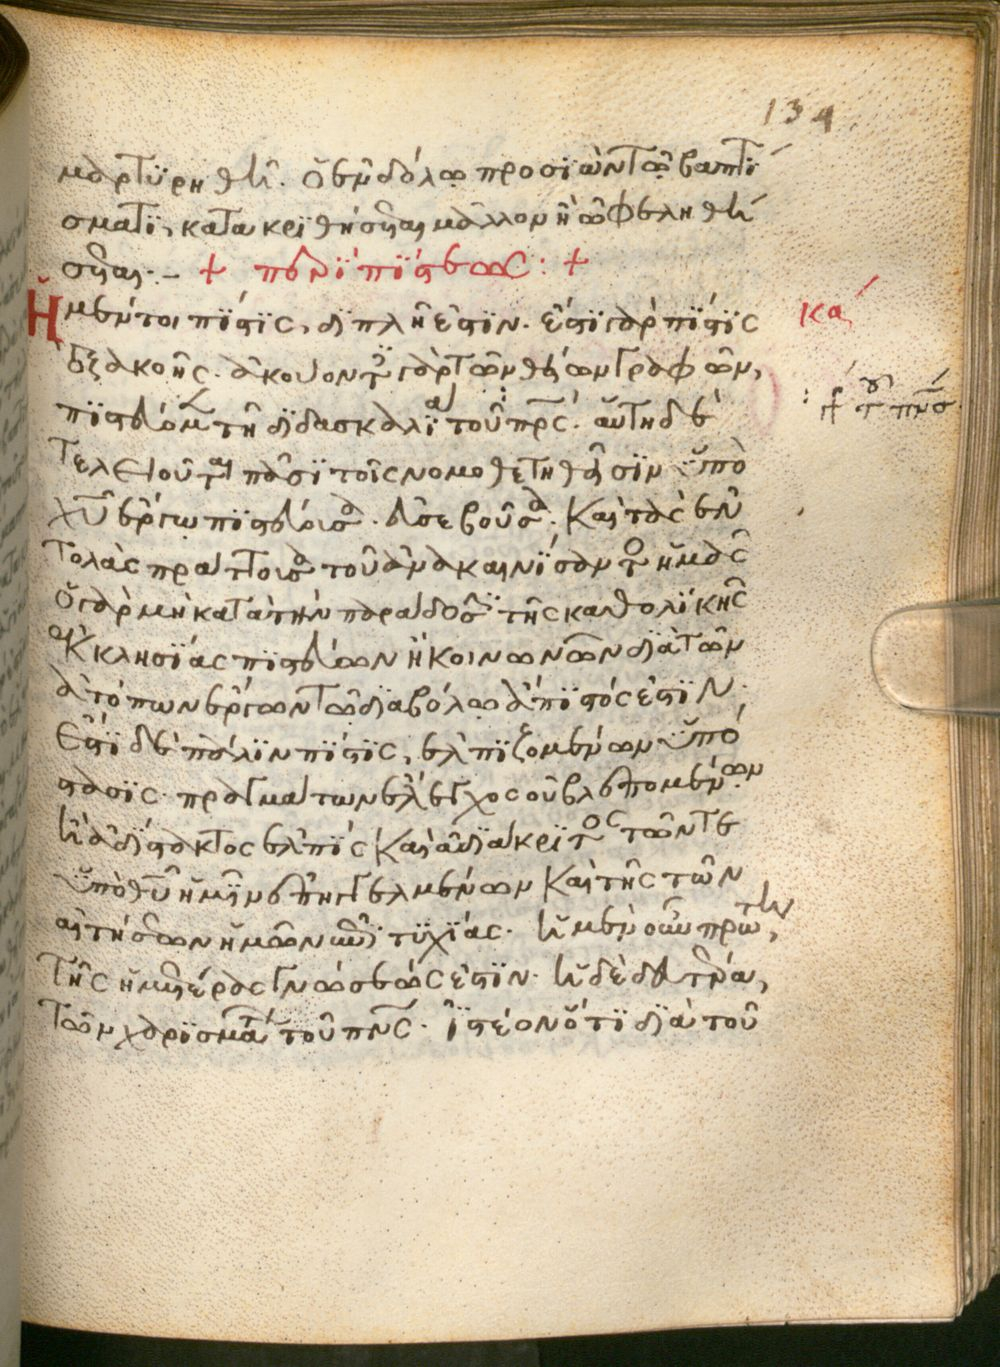 134
μαρτυρηθῆ. ὁ ἐν δόλω προσϊὼν τῶ βαπτί
σματϊ, κατακριθήσεται μᾶλλον ἢ ὠφεληθή
σεται· – + περὶ πίστεως : +
Ἡ μέντοι πίστϊς, διπλῆ ἐστϊν· ἔστϊ γὰρ πίστϊς
ἐξ ἀκοῆς· ἀκούοντες γὰρ τῶν θείων γραφῶν,
πϊστεύομεν τῆ διδασκαλία τοῦ πνς· αὕτη δὲ
τελειοῦται πᾶσϊ τοῖς νομοθετηθεῖσϊν ὑπὸ
χυ ἔργω πϊστεύουσα· εὐσεβοῦσα· καὶ τὰς ἐν
τολὰς πράττουσα τοῦ ἀνακαινίσαντος ἡμᾶς
ὁ γὰρ μὴ κατὰ τὴν παράδοσιν τῆς καθολϊκῆς
ἐκκλησϊας πϊστεύων ἢ κοινωνῶν διὰ τῶν
ἀτόπων ἔργων τῶ διαβόλω ἄπϊστός ἐστϊν·
Ἔστϊ δὲ πάλϊν πίστϊς, ἐλπϊζομένων ὑπό
στασϊς· πραγμάτων ἔλεγχος οὐ βλεπομένων
ἢ ἀδίστακτος ἐλπὶς καὶ ἀδιάκριτος τῶν τε
ὑπὸ θυ ἡμῖν ἐπηγγελμένων καὶ τῆς τῶν
αἰτήσεων ἡμῶν ἐπιτυχίας· ἡ μὲν οὖν πρώτη,
τῆς ἡμετέρας γνώσεώς ἐστϊν· ἡ δὲ δευτέρα,
τῶν χαρϊσμάτων τοῦ πνς· ἰστέον ὅτϊ διὰ τοῦ
κα